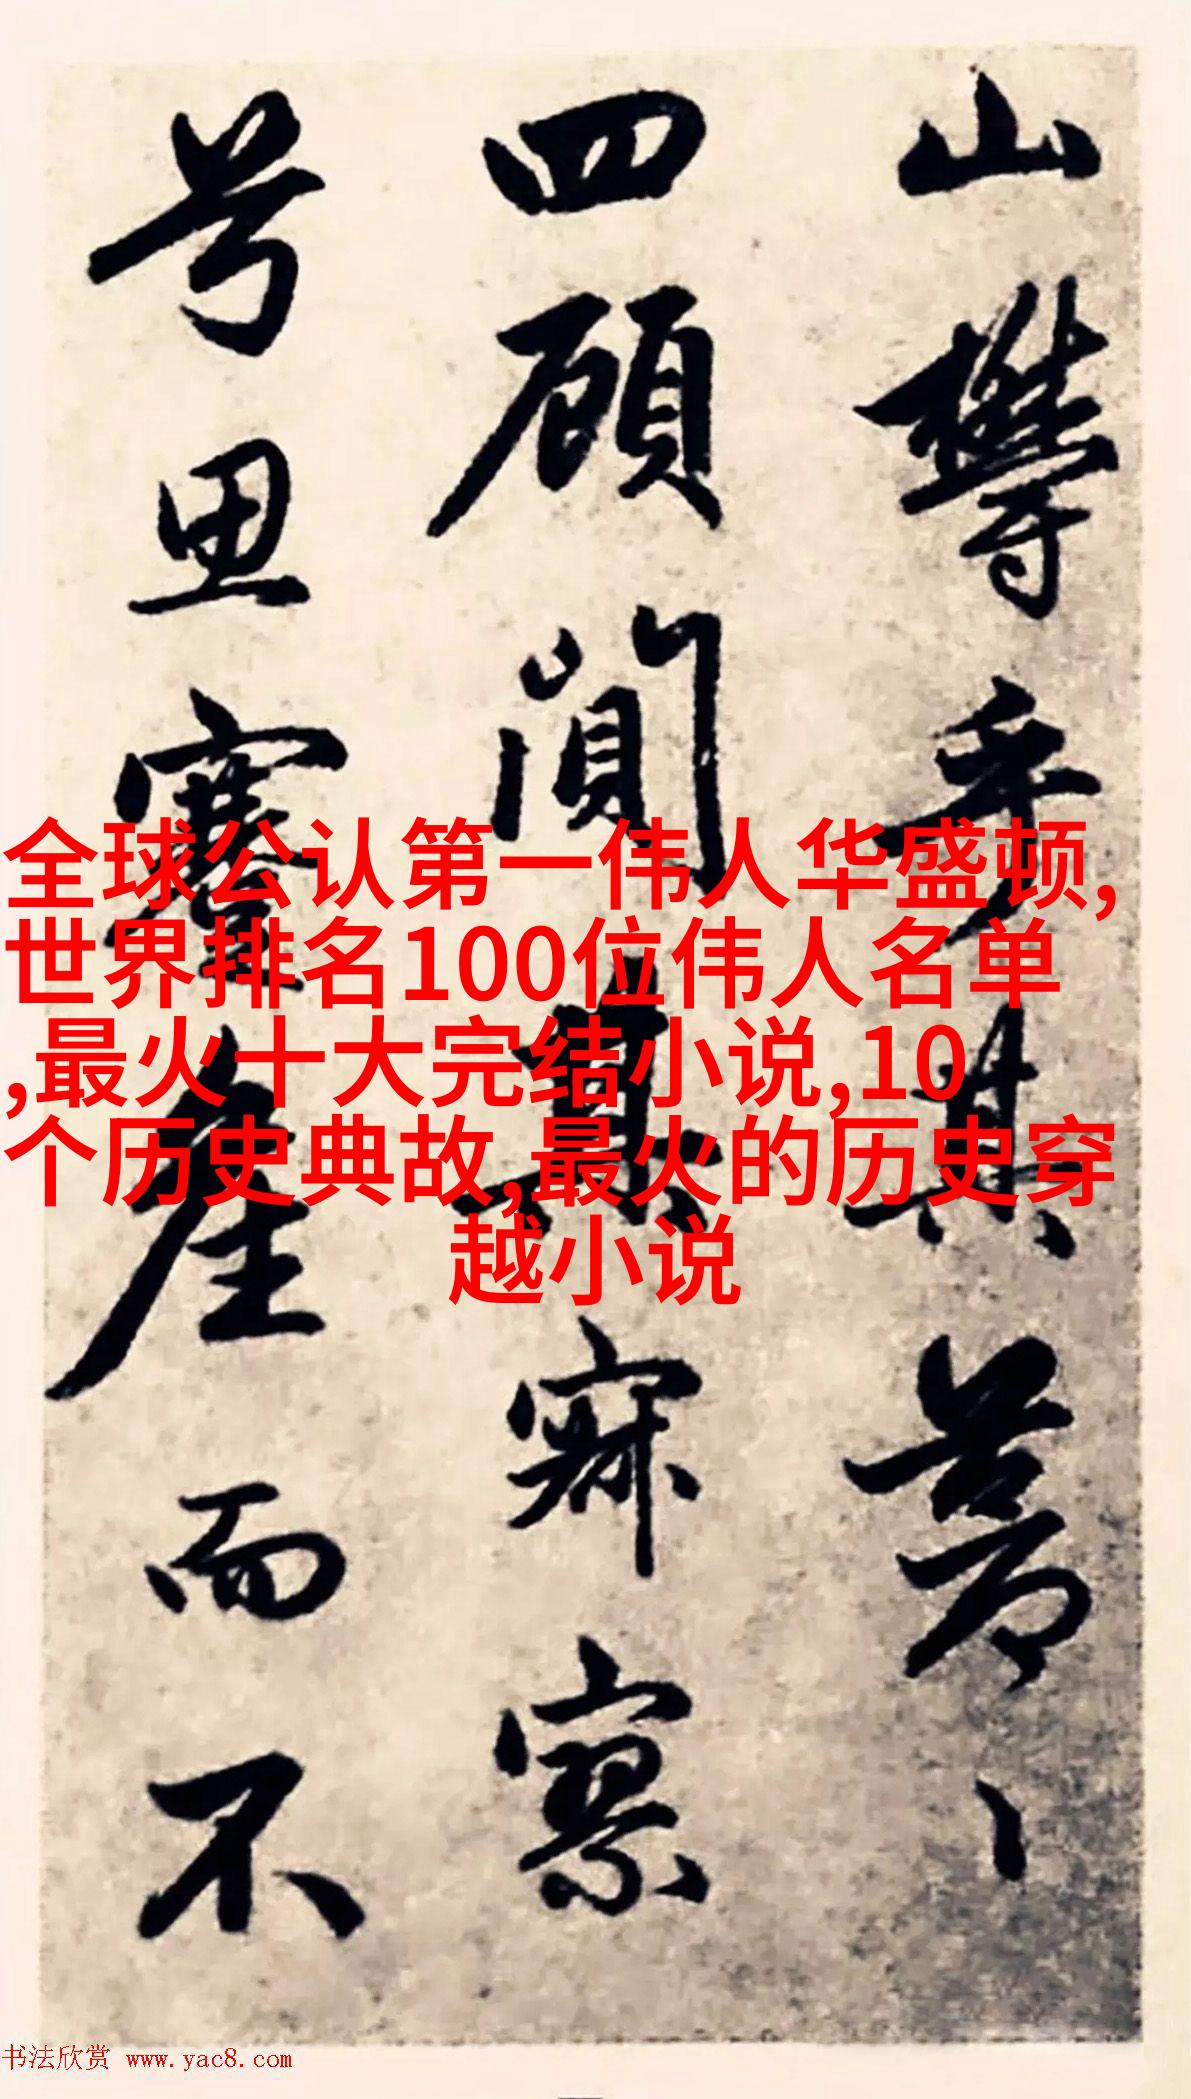 山欝乎其
四顧闃其寂寥
兮思蹇産而不
全球公认第一伟人华盛顿,
世界排名100位伟人名单
,最火十大完结小说,10
个历史典故,最火的历史穿
越小说
书法欣赏 www.yac8.com